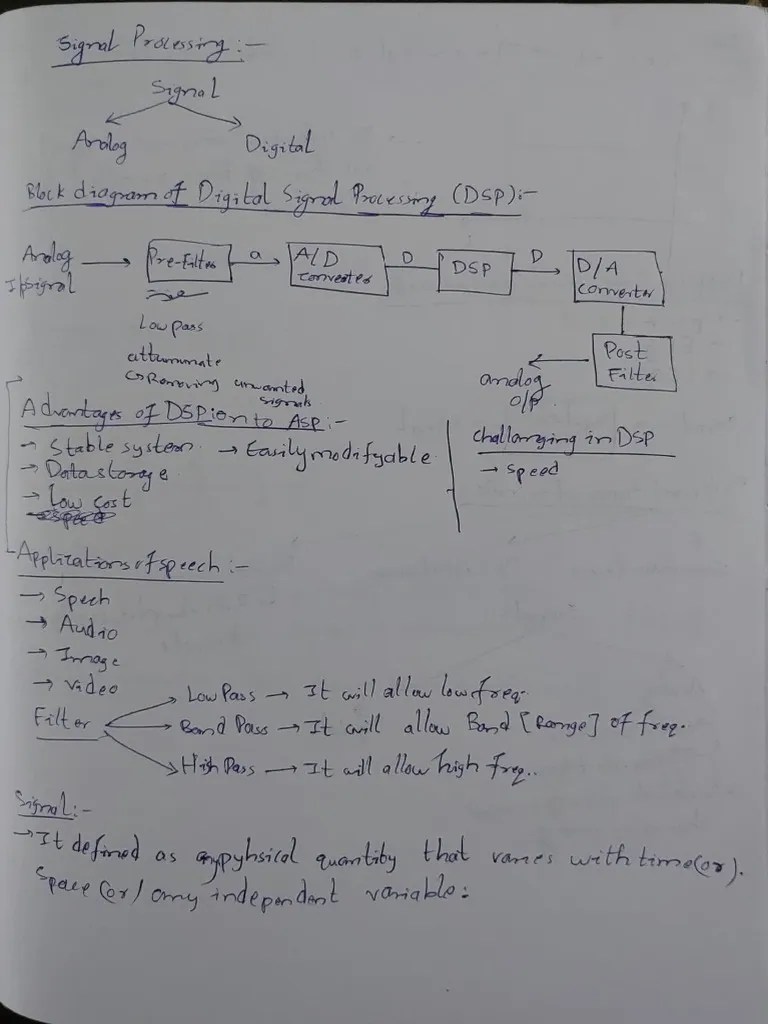 Signal Processing :-
Signal
Analog Digital
Block diagram of Digital Signal Processing (DSP):-
Analog I/p signal
Pre-Filter
a
A/D converter
D
DSP
D
D/A converter
Low pass
attummate
Removing unwanted signals
Post Filter
analog O/P
Advantages of DSP ion to ASP :-
→ Stable system. → Easily modifyable
→ Data storage
→ Low cost
Challanging in DSP
→ Speed
Applications of speech :-
→ Spech
→ Audio
→ Image
→ Video
Filter
Low Pass → It will allow low freq.
Band Pass → It will allow Band [Range] of freq.
High Pass → It will allow high freq..
Signal :-
→ It defined as any pyhsical quantity that varies with time (or).
Space (or) any independent variable.